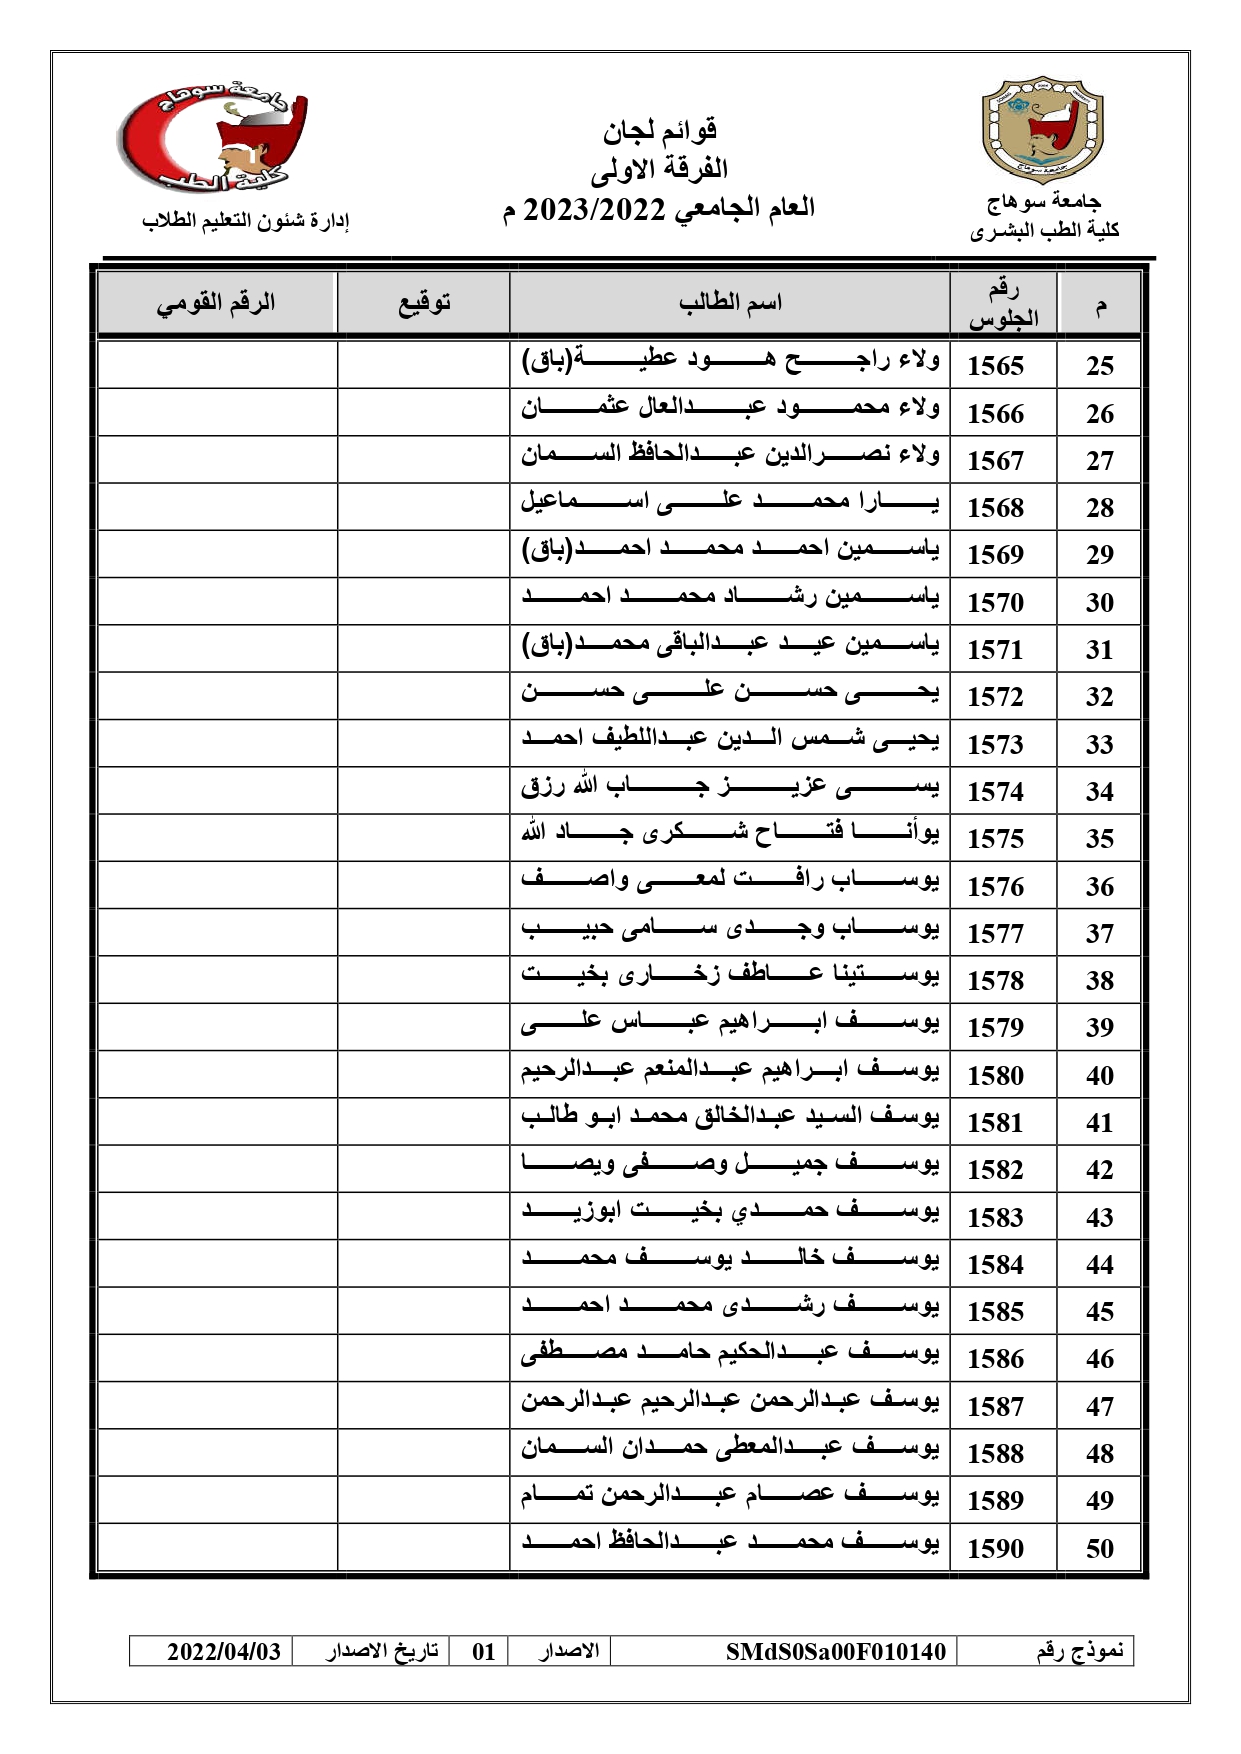 جامعة سوهاج
كلية الطب البشرى
قوائم لجان
الفرقة الاولى
العام الجامعي 2023/2022 م
جامعة سوهاج
كلية الطب
إدارة شئون التعليم الطلاب
م رقم الجلوس اسم الطالب توقيع الرقم القومي
25 1565 ولاء راجح هود عطية(باق)
26 1566 ولاء محمود عبدالعال عثمان
27 1567 ولاء نصرالدين عبدالحافظ السمان
28 1568 يارا محمد على اسماعيل
29 1569 ياسمين احمد محمد احمد(باق)
30 1570 ياسمين رشاد محمد احمد
31 1571 ياسمين عيد عبدالباقى محمد(باق)
32 1572 يحى حسن على حسن
33 1573 يحيى شمس الدين عبداللطيف احمد
34 1574 يسى عزيز جاب الله رزق
35 1575 يوأنا فتاح شكرى جاد الله
36 1576 يوساب رافت لمعى واصف
37 1577 يوساب وجدى سامى حبيب
38 1578 يوستينا عاطف زخارى بخيت
39 1579 يوسف ابراهيم عباس على
40 1580 يوسف ابراهيم عبدالمنعم عبدالرحيم
41 1581 يوسف السيد عبدالخالق محمد ابو طالب
42 1582 يوسف جميل وصفى ويصا
43 1583 يوسف حمدي بخيت ابوزيد
44 1584 يوسف خالد يوسف محمد
45 1585 يوسف رشدى محمد احمد
46 1586 يوسف عبدالحكيم حامد مصطفى
47 1587 يوسف عبدالرحمن عبدالرحيم عبدالرحمن
48 1588 يوسف عبدالمعطى حمدان السمان
49 1589 يوسف عصام عبدالرحمن تمام
50 1590 يوسف محمد عبدالحافظ احمد
نموذج رقم SMdS0Sa00F010140 الاصدار 01 تاريخ الاصدار 2022/04/03